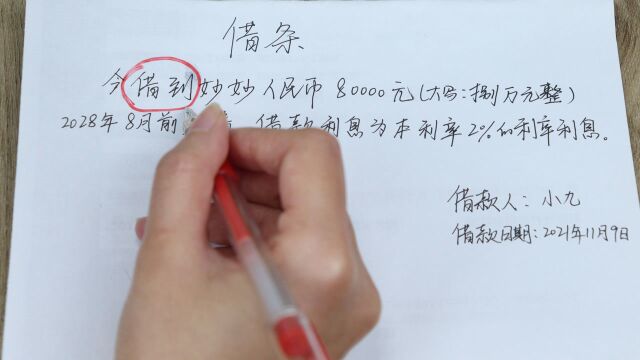 借条
今借到妙妙人民币80000元(大写:捌万元整)
2028年8月前 借款利息为本利率2%的利率利息。
借款人:小九
借款日期:2021年11月9日